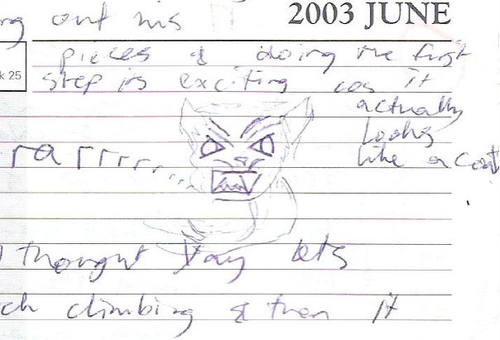 ng out his 2003 JUNE
pieces & doing the first
k 25 step is exciting cos it
actually
looks
rarrrrr... like a coat
I thought Yay lets
ch climbing & then it